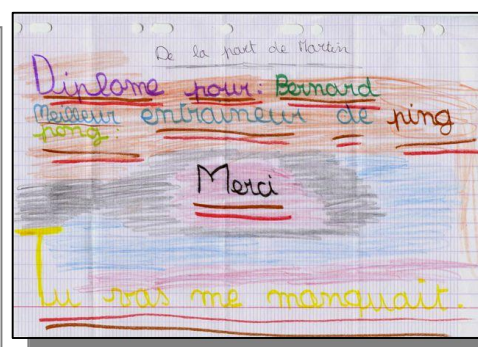 De la part de Martin
Diplome pour: Bernard
Meilleur entraineur de ping
pong.
Merci
Tu vas me manquait.